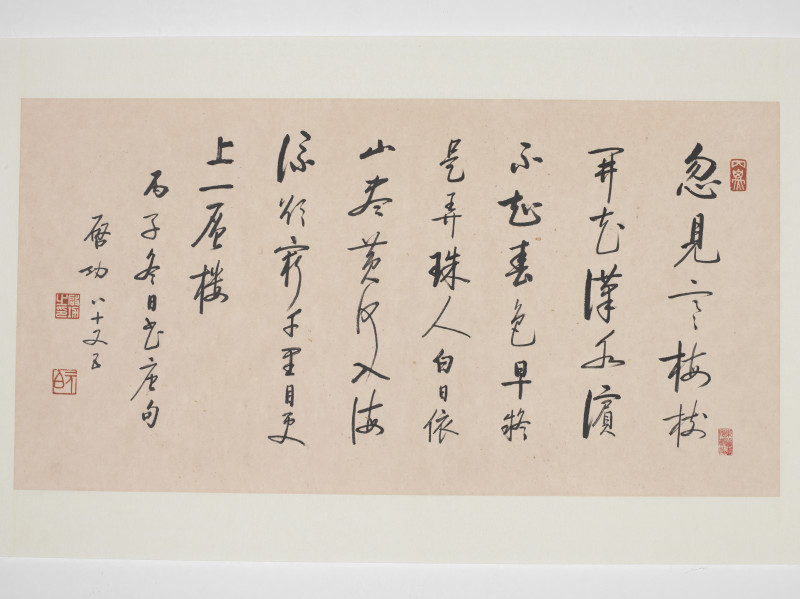 忽見寒梅樹
開花漢水濱
不知春色早疑
是弄珠人白日依
山盡黃河入海
流欲窮千里目更
上一層樓
丙子冬日書唐句
啟功 八十又五
元白